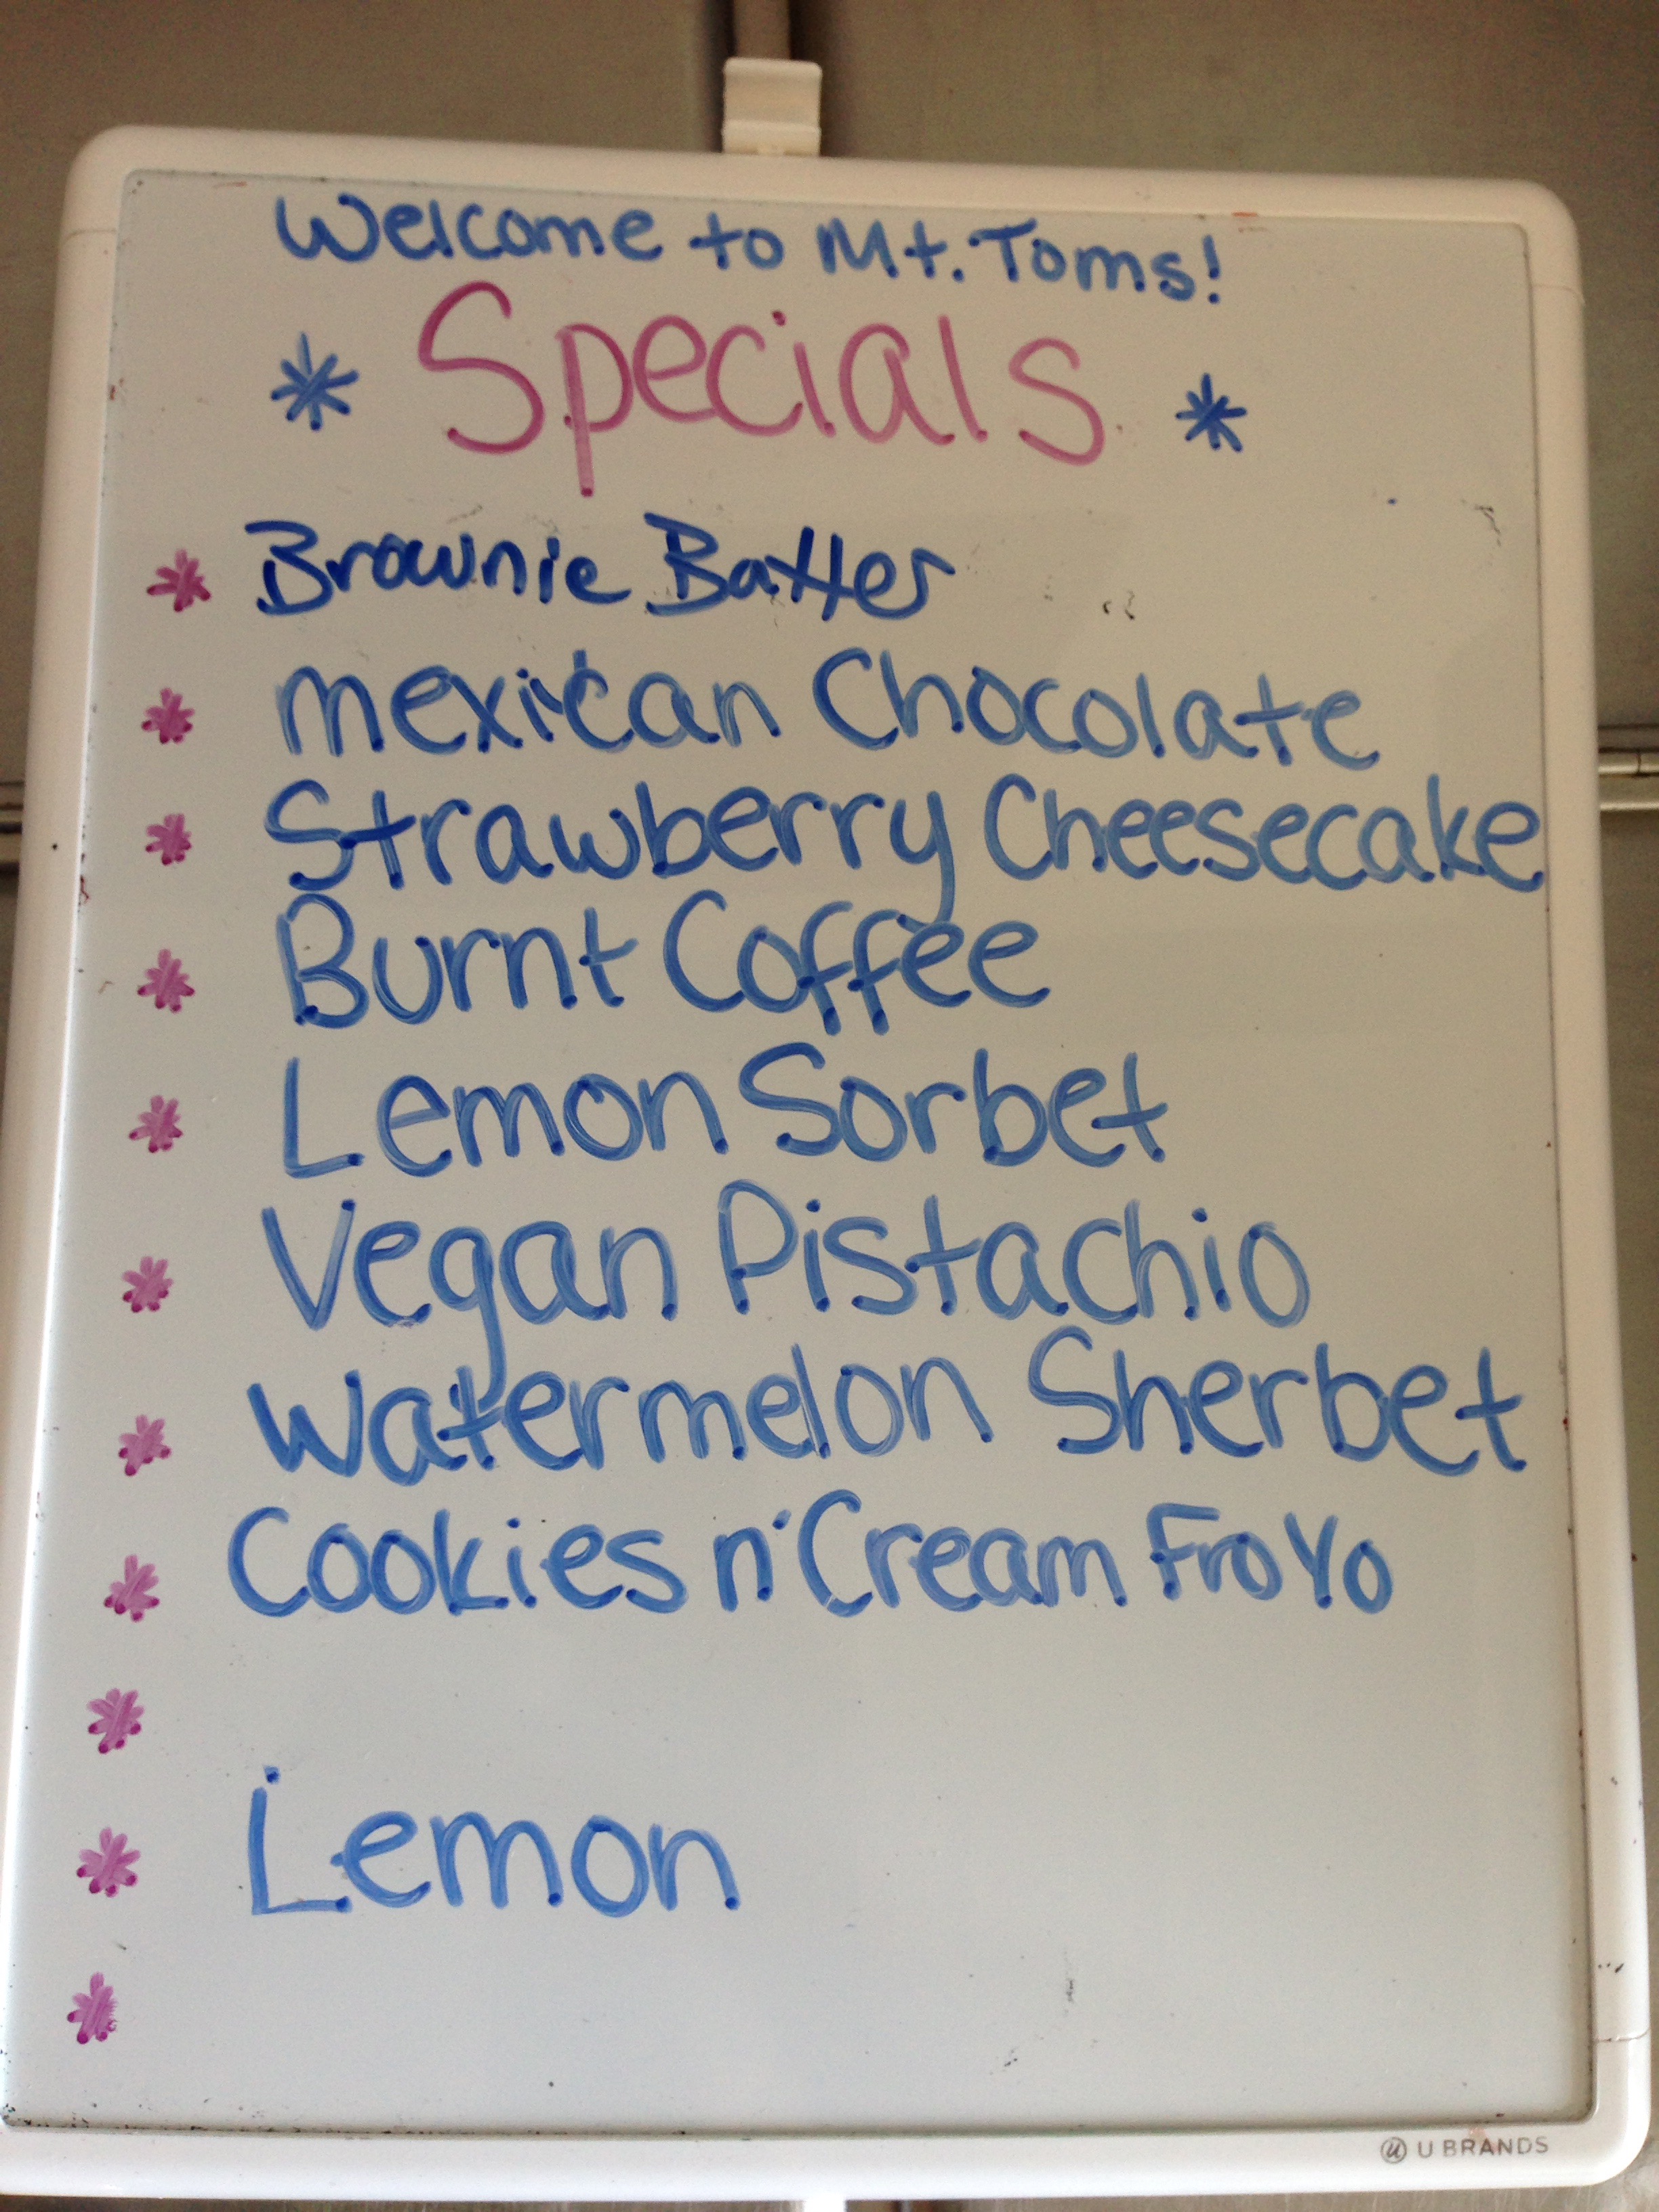 Welcome to Mt. Toms!
* Specials *
* Brownie Batter
* mexican Chocolate
* Strawberry Cheesecake
* Burnt Coffee
* Lemon Sorbet
* Vegan Pistachio
* Watermelon Sherbet
* Cookies n' Cream FroYo
*
* Lemon
*
U BRANDS